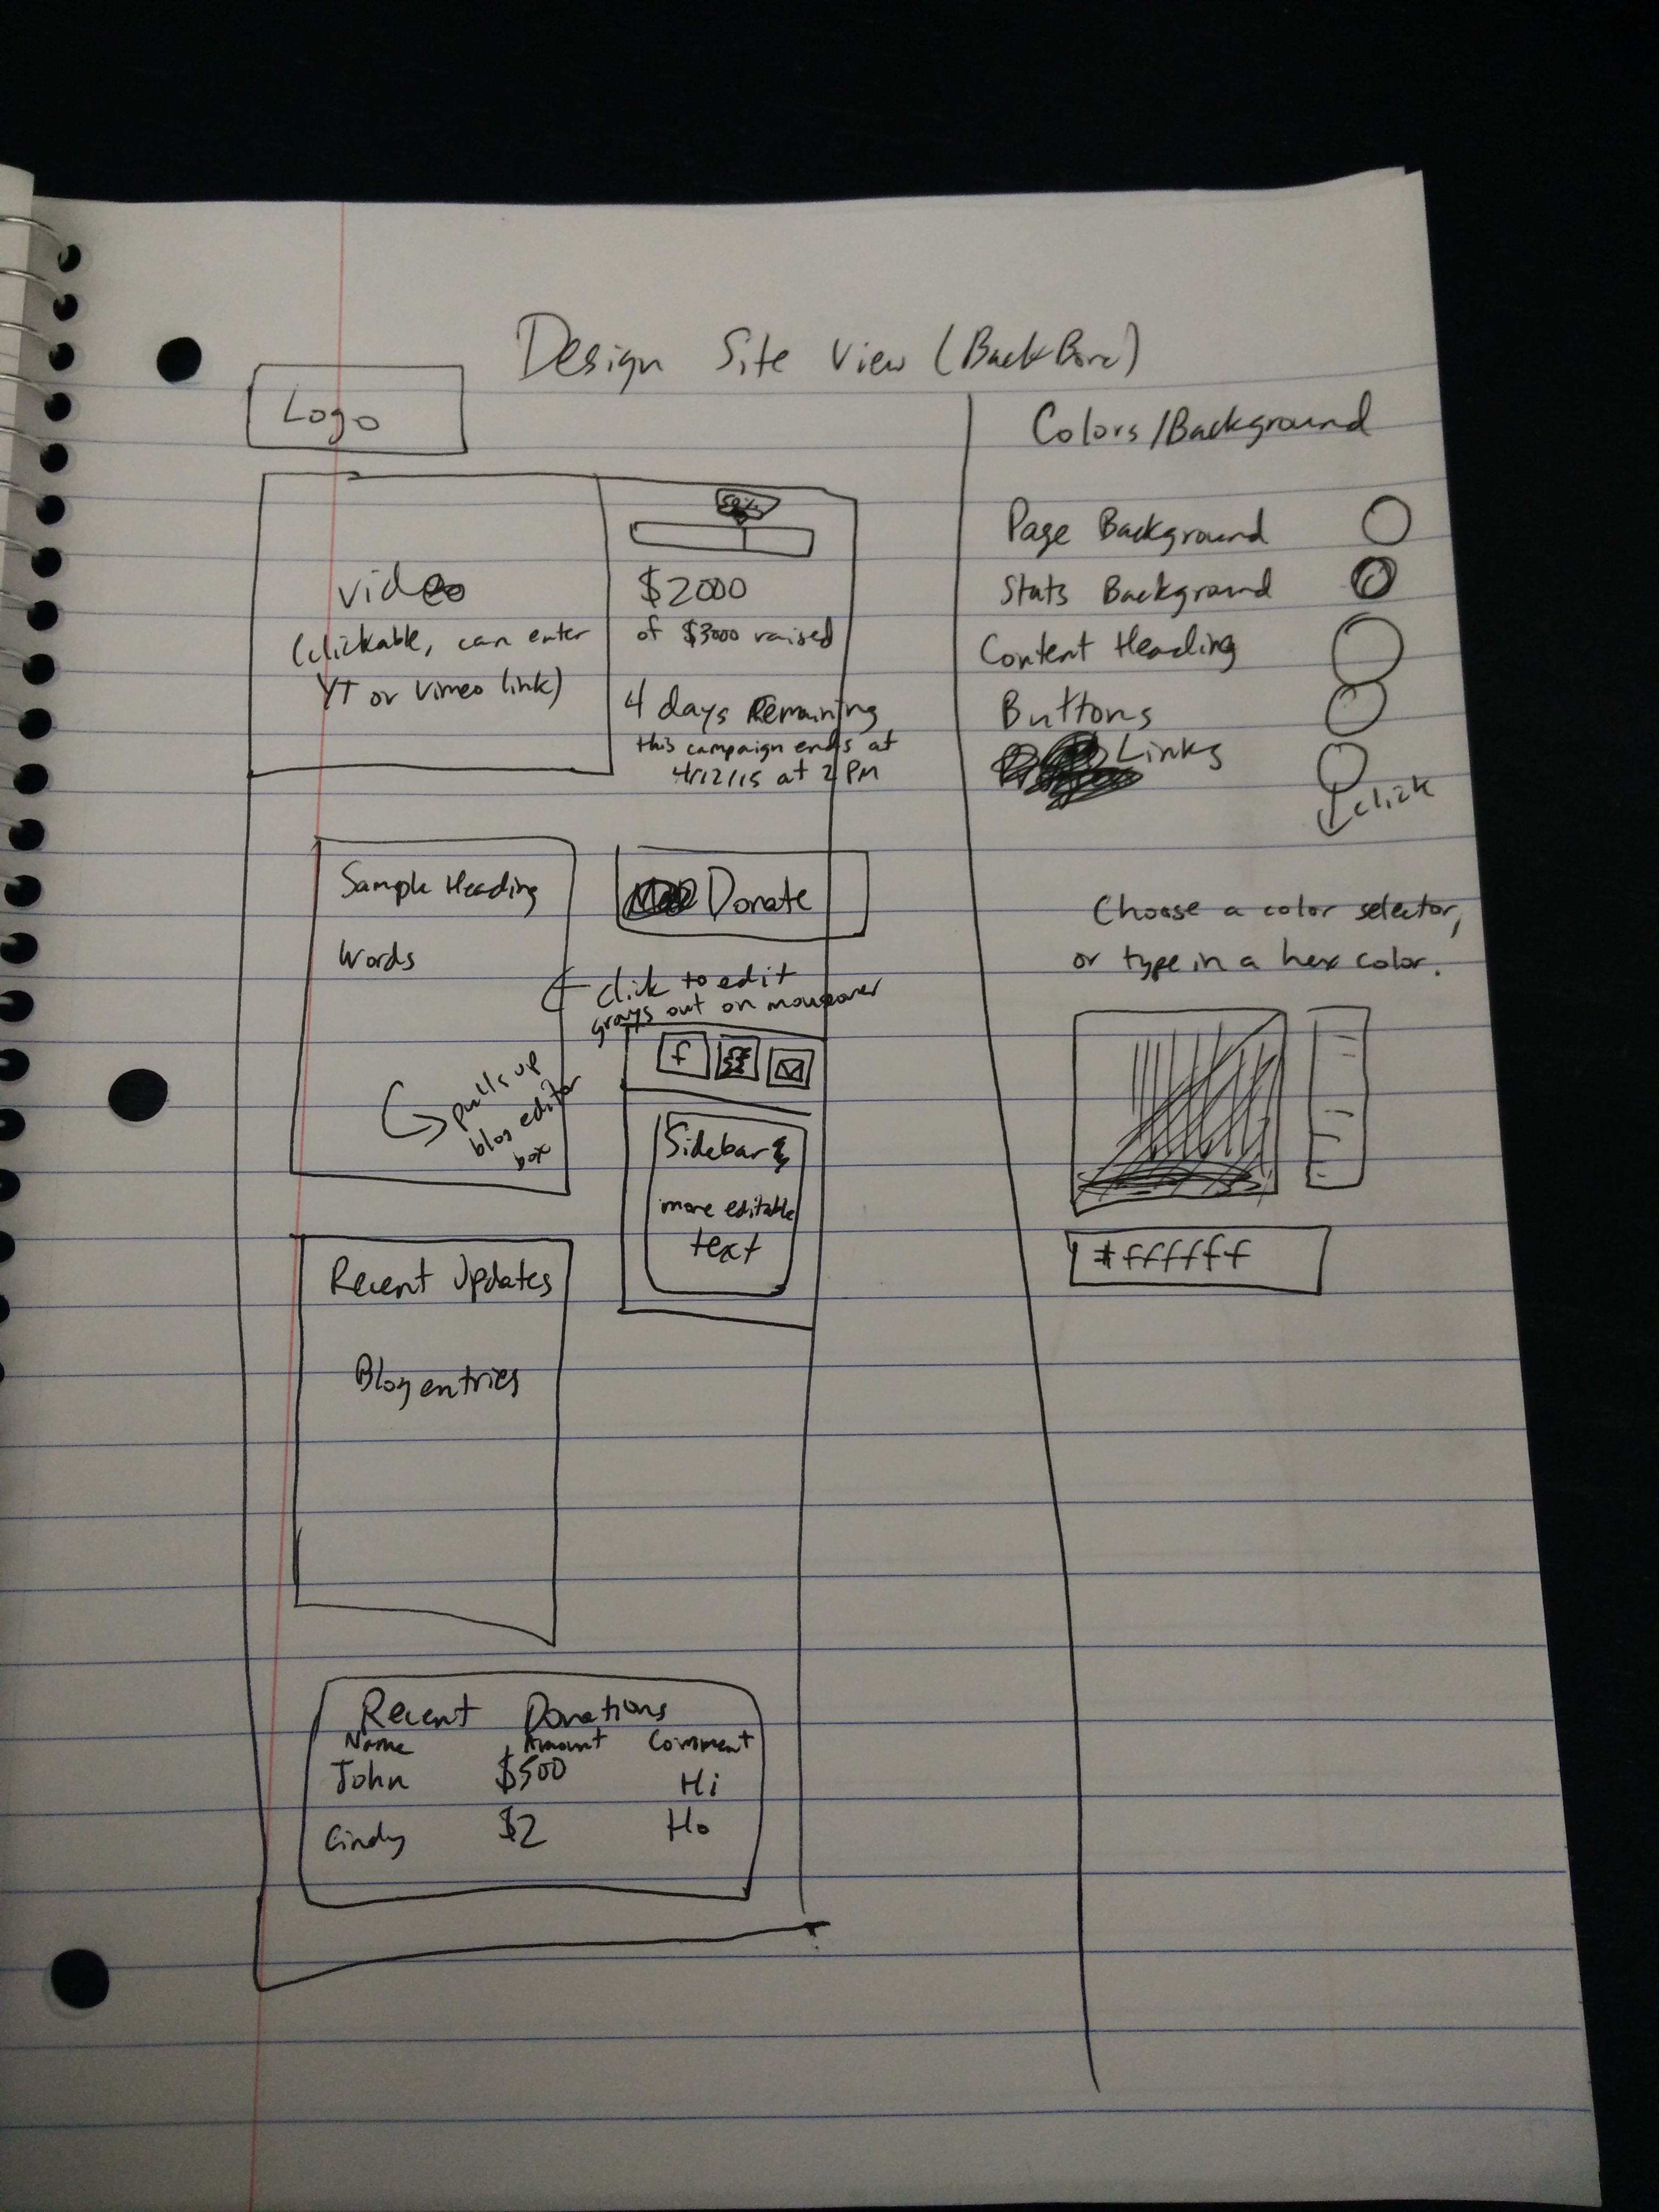 Design Site View (BackBone)
Logo
Video
(clickable, can enter
YT or Vimeo link)
$2000
of $3000 raised
4 days Remaining
this campaign ends at
4/12/15 at 2 PM
Sample Heading
Words
Donate
click to edit
grays out on mouseover
pulls up
blog editor
box
f
Sidebar
more editable
text
Recent Updates
Blog entries
Recent Donations
Name Amount Comment
John $500 Hi
Cindy $2 Ho
Colors/Background
Page Background
Stats Background
Content Heading
Buttons
Links
click
Choose a color selector,
or type in a hex color.
#ffffff